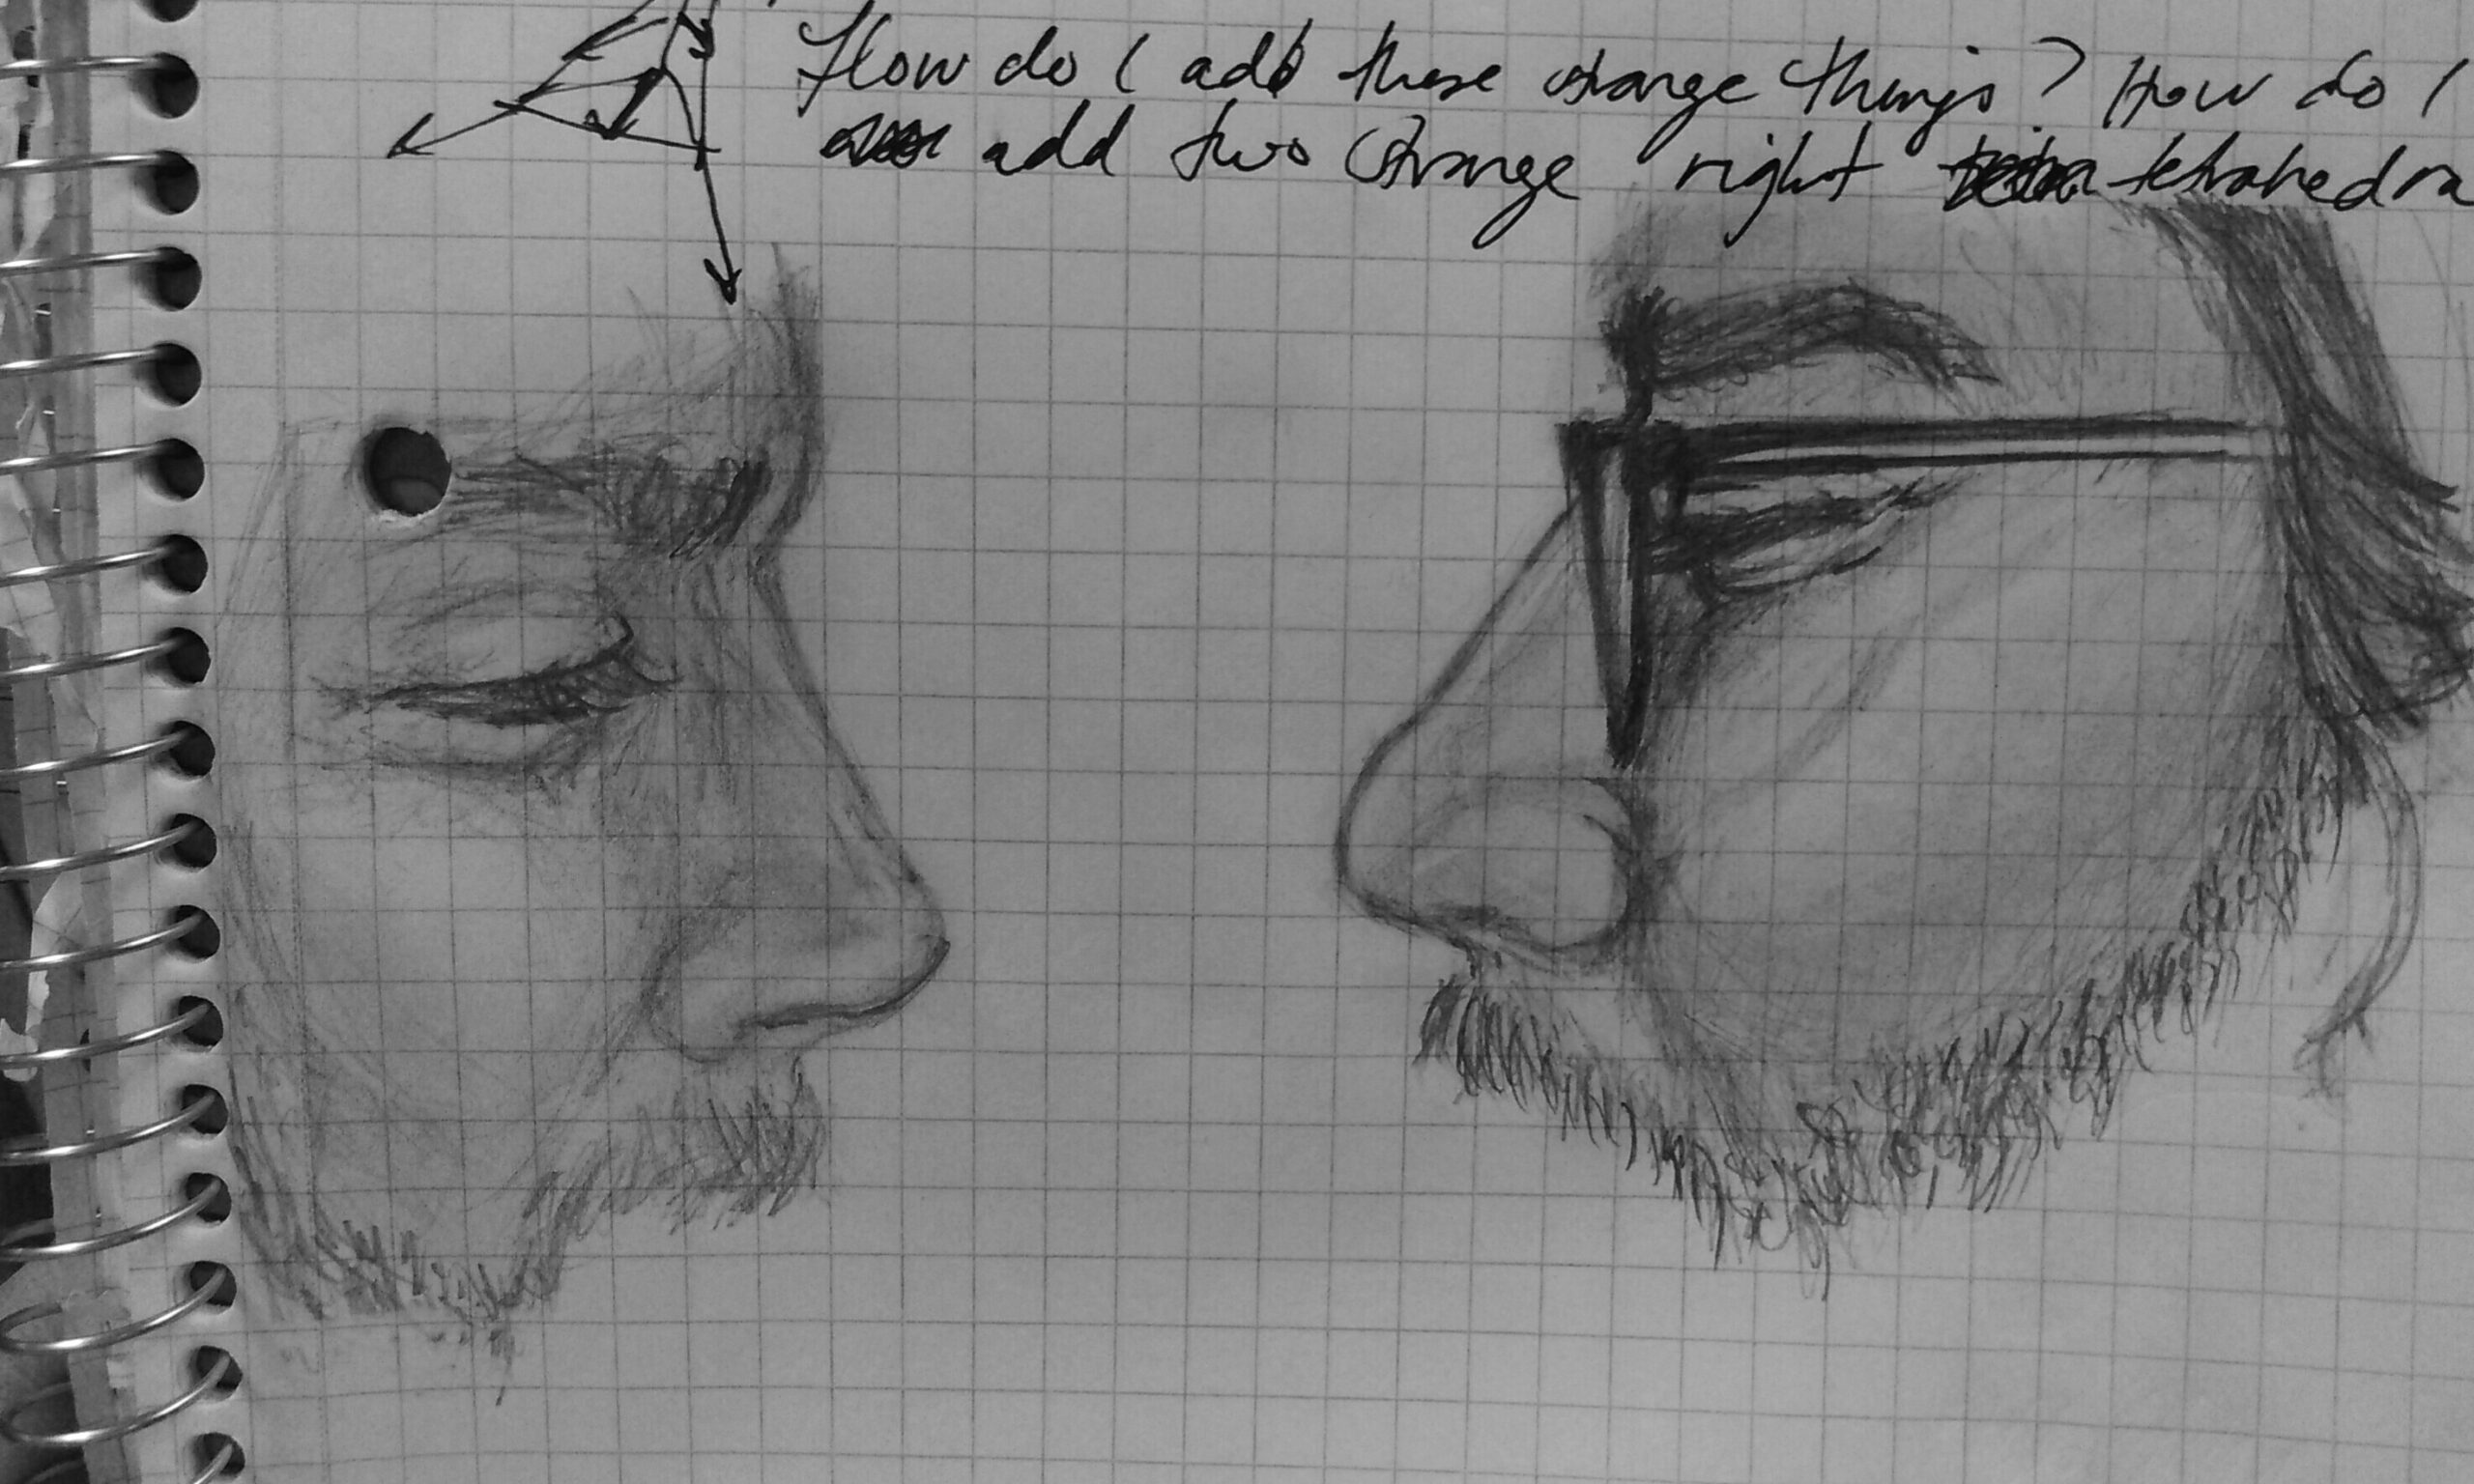 How do I add these strange things? How do I
add two strange right tetrahedra